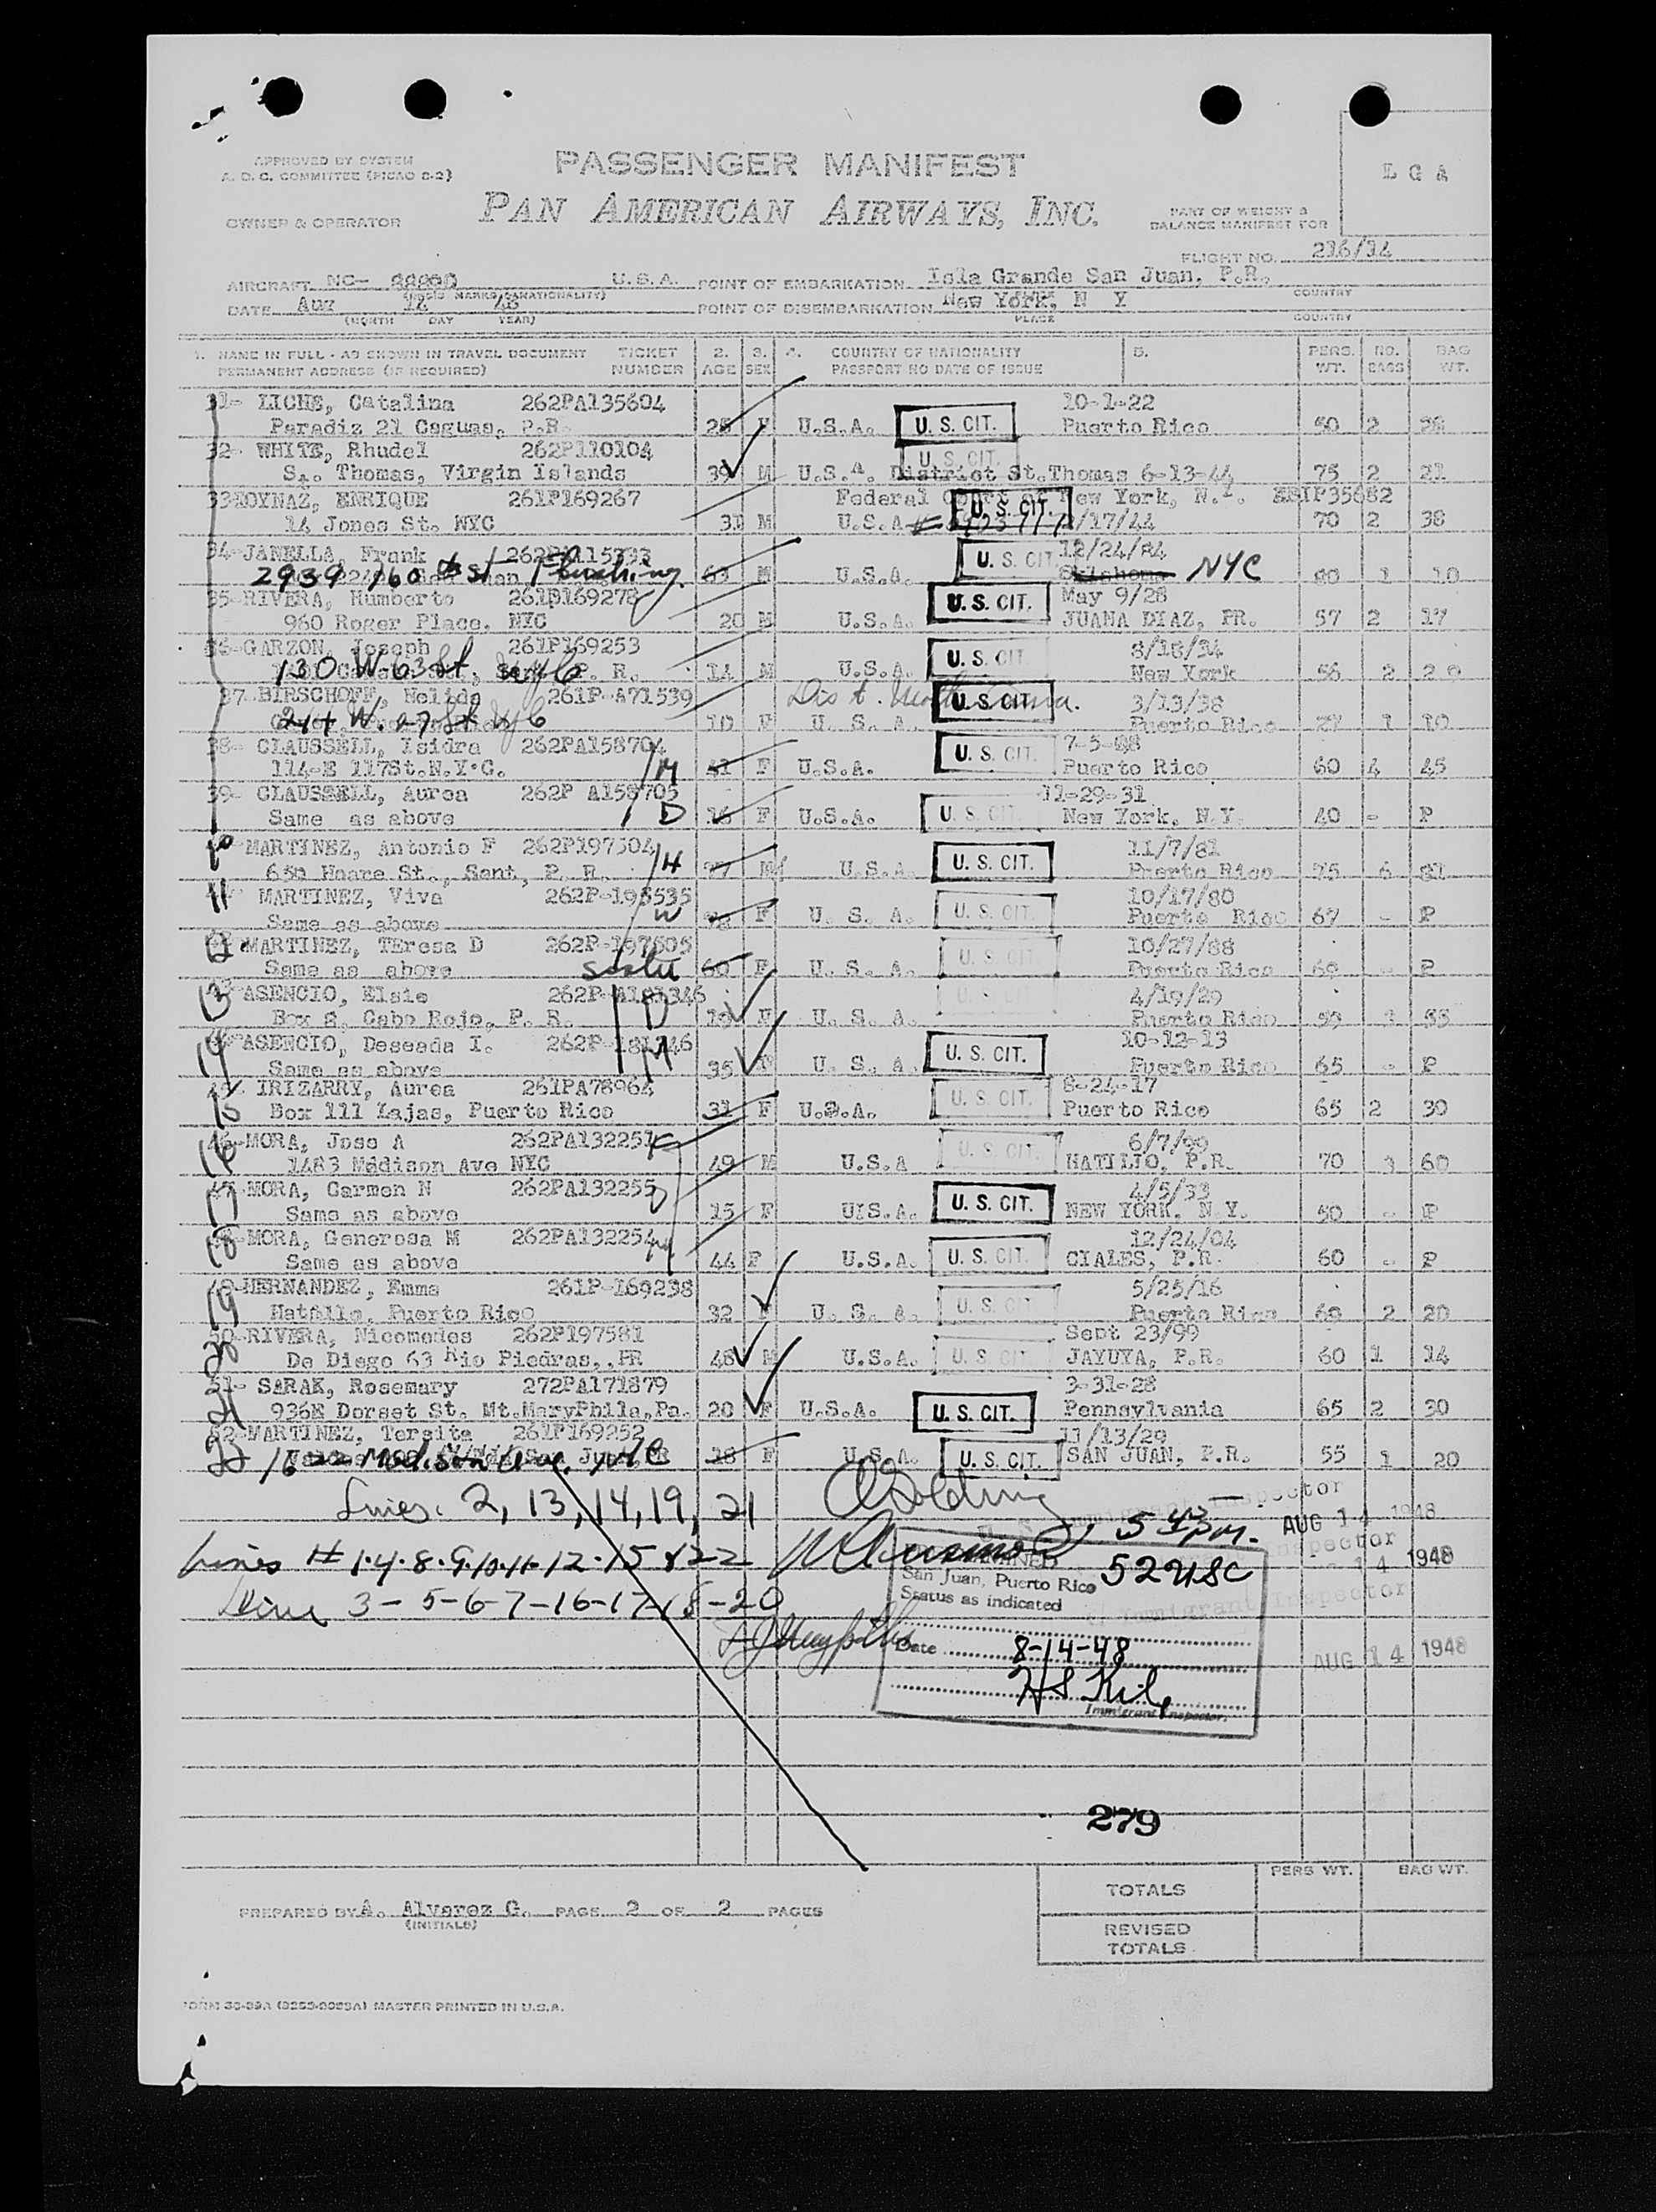 APPROVED BY SYSTEM
A. D. C. COMMITTEE (PICAO 8-2)
OWNER & OPERATOR
PASSENGER MANIFEST
PAN AMERICAN AIRWAYS, INC.
L G A
PART OF WEIGHT &
BALANCE MANIFEST FOR
FLIGHT NO. 216/14
AIRCRAFT NC- U.S.A. POINT OF EMBARKATION Isla Grande San Juan, P.R.
DATE Aug 14 48 POINT OF DISEMBARKATION New York, N Y
(MONTH DAY YEAR) PLACE COUNTRY
1. NAME IN FULL - AS SHOWN IN TRAVEL DOCUMENT TICKET 2. 3. 4. COUNTRY OF NATIONALITY 5. PERS. NO. BAG
PERMANENT ADDRESS (IF REQUIRED) NUMBER AGE SEX PASSPORT NO DATE OF ISSUE WT. BAGS WT.
31- LICHE, Catalina 262PA135604 10-1-22
Paradiz 21 Caguas, P.R. 25 F U.S.A. U. S. CIT. Puerto Rico 50 2
32- WHITE, Rhudel 262P110104 U. S. CIT.
St. Thomas, Virgin Islands 39 M U.S.A. District St.Thomas 6-13-44 75 2 21
33- ENRIQUE 261P169267 Federal Court of New York, N.Y.
14 Jones St. NYC 31 M U.S.A. U. S. CIT. /17/44 70 2 38
34-JANELLA, Frank U. S. CIT. 12/24/84
2939 160th St Flushing 63 M U.S.A. NYC 1 10
35-RIVERA, Humberto 261P169278 U. S. CIT. May 9/28
960 Roger Place. NYC 20 M U.S.A. JUANA DIAZ, PR. 57 2 17
36-GARZON, Joseph 261P169253 U. S. CIT. 8/18/34
130 W. 63 St, NYC 14 M U.S.A. New York 56 2 20
37-BIRSCHOFF, Nelida 261P-A71539 U. S. CIT. 3/13/38
244 W. 27 St NYC 10 F U. S. A. Puerto Rico 1 10
38- CLAUSSELL, Isidra 262PA158704 U. S. CIT. 7-5-
114-E 117St.N.Y.C. M 41 F U.S.A. Puerto Rico 60 4 45
39- CLAUSSELL, Aurea 262P A158705 11-29-31
Same as above D 16 F U.S.A. U. S. CIT. New York. N.Y. 40 - P
10 MARTINEZ, Antonio F 262P197504 U. S. CIT. 11/7/81
650 Hoare St., Sant, P. R. H M U.S.A. Puerto Rico 75 6
11 MARTINEZ, Viva U. S. CIT. 10/17/80
Same as above W F U. S. A. Puerto Rico 67 - P
12 MARTINEZ, TEresa D 262P-197505 U. S. CIT. 10/27/88
Same as above sister 60 F U. S. A. Puerto Rico 60 - P
13 ASENCIO, Elsie 262P-A181346 U. S. CIT. 4/19/29
Box 8, Cabo Rojo, P. R. D 19 F U. S. A. Puerto Rico
14 ASENCIO, Deseada I. U. S. CIT. 10-12-13
Same as above M 35 F U. S. A. Puerto Rico 65 - P
15 IRIZARRY, Aurea 261PA78964 U. S. CIT. 8-24-17
Box 111 Lajas, Puerto Rico 31 F U.S.A. Puerto Rico 65 2 30
16 MORA, Jose A 262PA132251 F U. S. CIT. 6/7/99
1483 Madison Ave NYC 49 M U.S.A HATILLO, P.R. 70 3 60
17 MORA, Carmen N 262PA132255 D U. S. CIT. 4/5/33
Same as above 15 F UIS.A. NEW YORK. N.Y. 50 - P
18 MORA, Generosa M 262PA132254 M U. S. CIT. 12/24/04
Same as above 44 F U.S.A. CIALES, P.R. 60 - P
19 HERNANDEZ, Emma 261P-169238 U. S. CIT. 5/25/16
Hatillo, Puerto Rico 32 F U. S. A. Puerto Rico 60 2 20
20 RIVERA, Nicomedes 262P197581 Sept 23/99
De Diego 63 Rio Piedras,.PR 48 M U.S.A. U. S. CIT. JAYUYA, P.R. 60 1 14
21 SARAK, Rosemary 272PA171879 3-31-28
936E Dorset St. Mt.MaryPhila,Pa. 20 F U.S.A. U. S. CIT. Pennsylvania 65 2 30
22 MARTINEZ, Tersita 261P169252 11/13/29
1622 Madison Ave. NYC 18 F U.S.A. U. S. CIT. SAN JUAN, P.R. 55 1 20
Lines. 2, 13, 14, 19, 21
Immigrant Inspector
AUG 14 1948
Lines # 1.4.8.9.10.11.12.15 & 22
San Juan, Puerto Rico 52 USC
Status as indicated
14 1948
Immigrant Inspector
Line 3-5-6-7-16-17-18-20
Date 8-14-48
AUG 14 1948
Immigrant Inspector.
279
PERS WT. BAG WT.
TOTALS
REVISED
TOTALS
PREPARED BY A. Alvarez G. PAGE 2 OF 2 PAGES
(INITIALS)
MASTER PRINTED IN U.S.A.